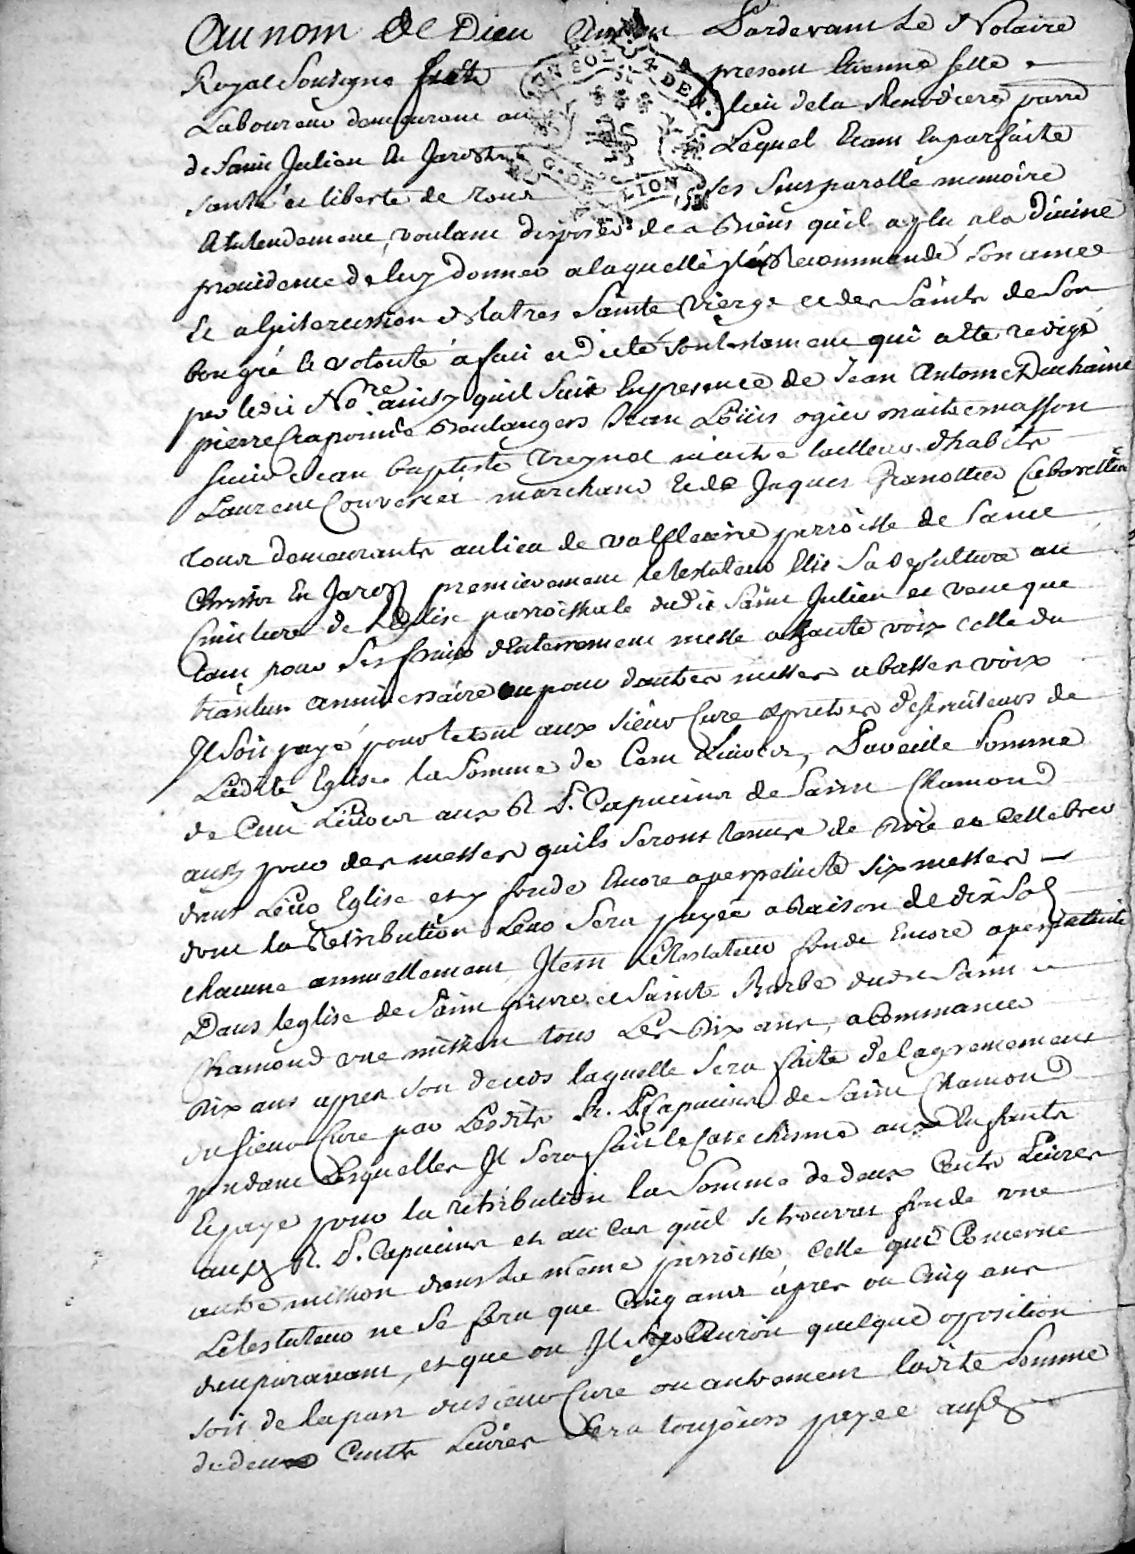 Au nom de Dieu Amen Pardevant Le Notaire
Royal Sousigné fut present Etienne selle
Laboureur demeurant au lieu de la parre
de Saint Julien En Jarest Lequel Etant En parfaite
santé et liberté de tous ses Sens parolle memoire
Et Entendement, voulant disposer de Biens qu'il a plu a la divine
providence de luy donner a laquelle il a Recommandé son ame
Et a l'intercession de la tres Sainte Vierge et des Saints de Son
bon gré et volonté a fait et dicté son testament qui a Eté redigé
par ledit Nore. ainsy quil Suit En presence de Jean Antoine Duchaine
pierre Chaponnié Boulangers Jean Loüis ogier maitre masson
Jean baptiste maitre tailleur d'habits
Laurent Couvert marchand Et de Jaques Granottier Cabarettier
tous demeurants au lieu de valfleurie parroisse de Saint
Christo En Jarez premierement le testateur Elit Sa Sepulture au
Cimitiere de L'Eglise parroissiale dudit Saint Julien et veut que
tant pour Ses frais d'Enterrement messe a haute voix celle du
trantin anniversaire ou pour d'autres messes a basses voix
Il soit payé pour le tout aux Sieur Curé et pretres deserviteurs de
Ladite Eglise la Somme de Cent Livres, Pareille Somme
de Cent Livres aux R. P. Capucins de Saint Chamond
aussy pour des messes quils seront tenus de dire et cellebrer
dans Leur Eglise et y fonde Encore a perpetuité six messes
dont la Retribution Leur Sera payée a Raison de dix Sols
chacune annuellement, Item Le testateur fonde Encore a perpetuité
Dans leglise de Saint pierre et Sainte Barbe dudit Saint
Chamond une mission tous Les dix ans, a Commancer
dix ans apres son deces laquelle Sera faite de lagrement
du Sieur Curé par Lesdits R. P. Capucins de Saint Chamond
pendant Lesquelles Il Sera fait le Catechisme aux Enfants
Et payé pour la retribution la Somme de deux Cents Livres
auxd. R. P. Capucins et au cas qu'il se trouvat fondé une
autre mission dans La même parroisse, celle qui Concerne
Le testateur ne Se fera que Cinq ans apres ou Cinq ans
auparavant, et que ou Il y auroit quelque opposition
soit de la part du sieur Curé ou autrement ladite Somme
de deux Cents Livres sera toujours payée auxd.
G. DE LION